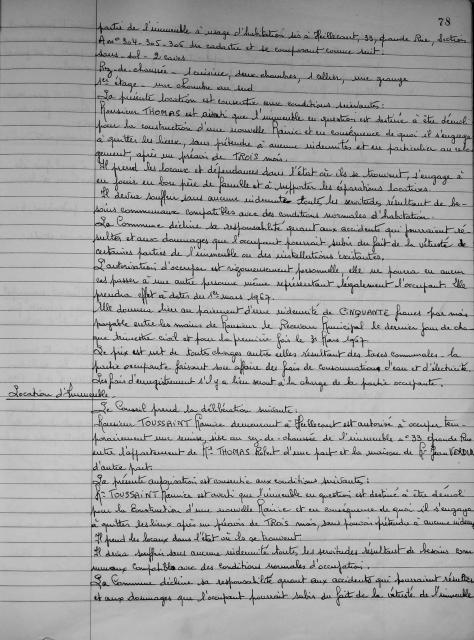 78
partie de l'immeuble à usage d'habitation sis à Heillecourt, 33, Grande Rue, Section
A nos 304 - 305 - 306 du cadastre et se composant comme suit :
Sous-sol - 2 caves
Rez-de-chaussée - 1 cuisine, deux chambres, 1 cellier, une grange
1er étage - une chambre au sud
La présente location est consentie aux conditions suivantes :
Monsieur THOMAS est averti que l'immeuble en question est destiné à être démoli
pour la construction d'une nouvelle Mairie et en conséquence de quoi il s'engage
à quitter les lieux, sans prétendre à aucune indemnité et en particulier au relo-
gement, après un préavis de TROIS mois.
Il prend les locaux et dépendances dans l'état où ils se trouvent, s'engage à
en jouir en bon père de famille et à supporter les réparations locatives.
Il devra souffrir sans aucune indemnité toutes les servitudes résultant de be-
soins communaux compatibles avec des conditions normales d'habitation.
La Commune décline sa responsabilité quant aux accidents qui pourraient ré-
sulter et aux dommages que l'occupant pourrait subir du fait de la vétusté de
certaines parties de l'immeuble ou des installations existantes.
L'autorisation d'occuper est rigoureusement personnelle, elle ne pourra en aucun
cas passer à une autre personne même représentant légalement l'occupant. Elle
prendra effet à dater du 1er mars 1967.
Elle donnera lieu au paiement d'une indemnité de CINQUANTE francs par mois
payable entre les mains de Monsieur le Receveur Municipal le dernier jour de cha-
que trimestre civil et pour la première fois le 31 Mars 1967.
Le prix est net de toutes charges autres celles résultant des taxes communales - la
partie occupante faisant son affaire des frais de consommations d'eau et d'électricité.
Les frais d'enregistrement s'il y a lieu sont à la charge de la partie occupante.
Location d'Immeuble
Le Conseil prend la délibération suivante :
Monsieur TOUSSAINT Maurice demeurant à Heillecourt est autorisé à occuper tem-
porairement une remise, sise au rez-de-chaussée de l'immeuble n° 33 Grande Rue
entre l'appartement de Mr THOMAS Robert d'une part et la maison de Mr Jean
d'autre part.
La présente autorisation est consentie aux conditions suivantes :
Mr TOUSSAINT Maurice est averti que l'immeuble en question est destiné à être démoli
pour la construction d'une nouvelle Mairie et en conséquence de quoi il s'engage
à quitter les lieux après un préavis de TROIS mois, sans pouvoir prétendre à aucune
Il prend les locaux dans l'état où ils se trouvent
Il devra souffrir sans aucune indemnité toutes les servitudes résultant de besoins com-
munaux compatibles avec des conditions normales d'occupation.
La Commune décline sa responsabilité quant aux accidents qui pourraient résulter
et aux dommages que l'occupant pourrait subir du fait de la vétusté de l'immeuble